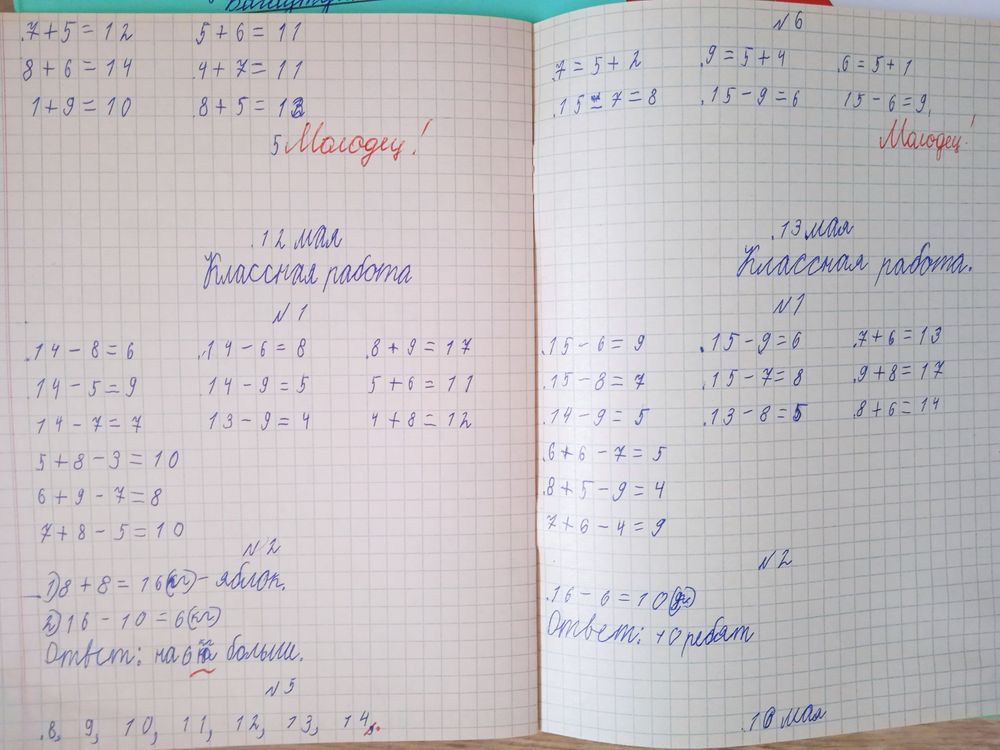 7+5=12 5+6=11
8+6=14 4+7=11
1+9=10 8+5=13
5 Молодец!
12 мая
Классная работа
№1
14-8=6 14-6=8 8+9=17
14-5=9 14-9=5 5+6=11
14-7=7 13-9=4 4+8=12
5+8-3=10
6+9-7=8
7+8-5=10
№2
1) 8+8=16(кг)- яблок.
2) 16-10=6(кг)
Ответ: на 6 больши.
№5
8, 9, 10, 11, 12, 13, 14.
№6
7=5+2 9=5+4 6=5+1
15-7=8 15-9=6 15-6=9,
Молодец!
13 мая
Классная работа.
№1
15-6=9 15-9=6 7+6=13
15-8=7 15-7=8 9+8=17
14-9=5 13-8=5 8+6=14
6+6-7=5
8+5-9=4
7+6-4=9
№2
16-6=10
Ответ: 10 ребят